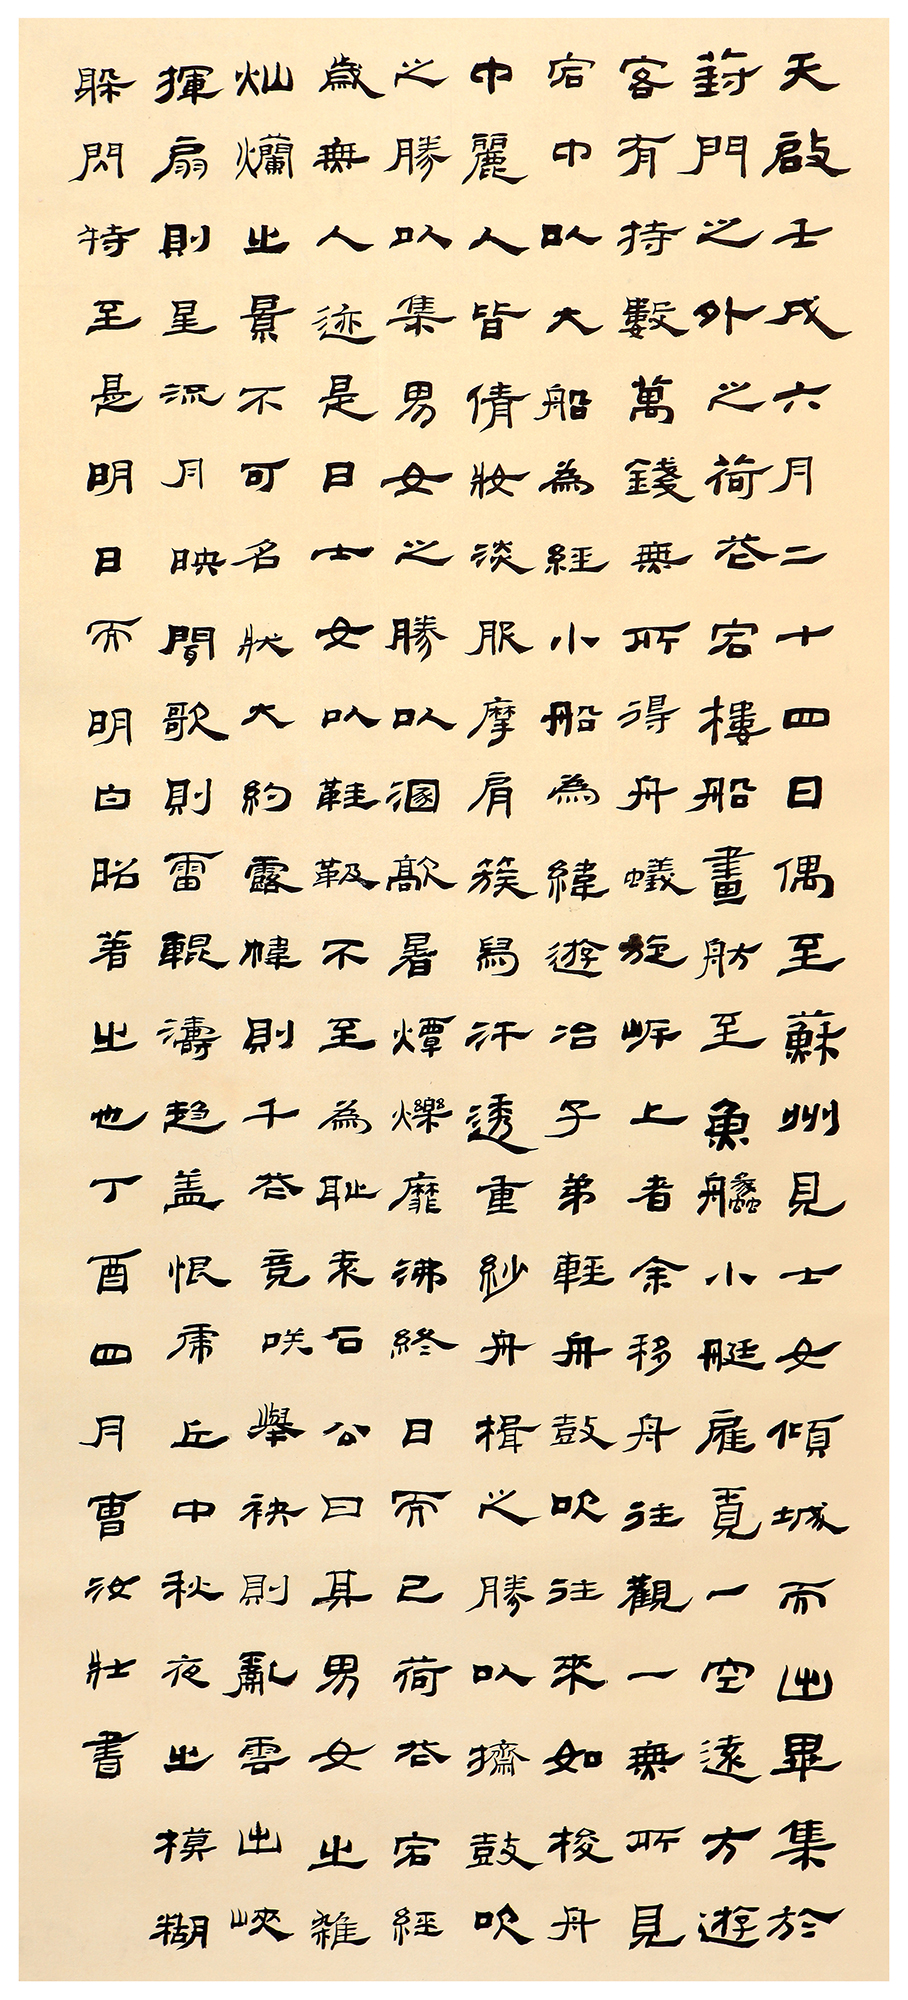 天啟壬戌六月二十四日偶至蘇州見士女傾城而出畢集於
葑門之外之荷花宕樓船畫舫至魚小艇雇覓一空遠方遊
客有持數萬錢無所得舟蟻旋岸上者余移舟往觀一無所見
宕中以大船為經小船為緯遊冶子弟輕舟鼓吹往來如梭舟
中麗人皆倩妝淡服摩肩簇舄汗透重紗舟楫之勝以擠鼓吹
之勝以集男女之勝以溷歊暑燂爍靡彿終日而已荷花宕經
歲無人迹是日士女以鞋靸不至為耻袁石公曰其男女之雜
灿爛之景不可名狀大約露幃則千花竞咲舉袂則亂雲出峽
揮扇則星流月映聞歌則雷輥濤趨盖恨虎丘中秋夜之模糊
躲閃特至是明日而明白昭著之也丁酉四月曹汝壯書